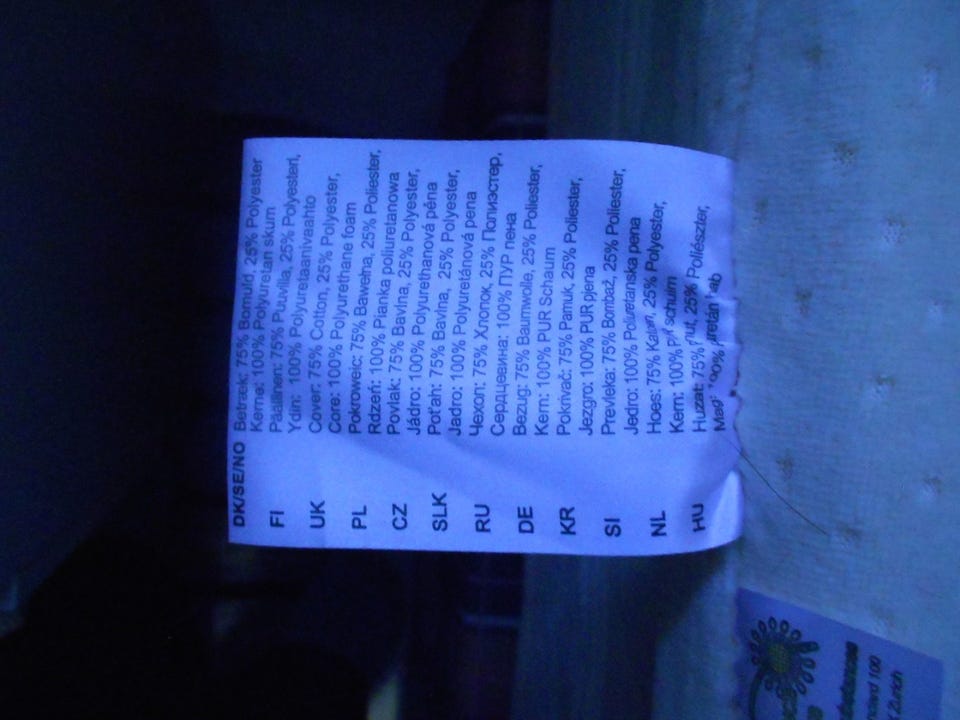 DK/SE/NO Betræk: 75% Bomuld, 25% Polyester
Kerne: 100% Polyuretan skum
FI Päällinen: 75% Puuvilla, 25% Polyesteri,
Ydin: 100% Polyuretaanivaahto
UK Cover: 75% Cotton, 25% Polyester,
Core: 100% Polyurethane foam
PL Pokrowiec: 75% Bawełna, 25% Poliester,
Rdzeń: 100% Pianka poliuretanowa
CZ Povlak: 75% Bavlna, 25% Polyester,
Jádro: 100% Polyurethanová pěna
SLK Poťah: 75% Bavlna, 25% Polyester,
Jadro: 100% Polyuretánová pena
RU Чехол: 75% Хлопок, 25% Полиэстер,
Сердцевина: 100% ПУР пена
DE Bezug: 75% Baumwolle, 25% Poliester,
Kern: 100% PUR Schaum
KR Pokrivač: 75% Pamuk, 25% Poliester,
Jezgro: 100% PUR pjena
SI Prevleka: 75% Bombaž, 25% Poliester,
Jedro: 100% Poliuretanska pena
NL Hoes: 75% Katoen, 25% Polyester,
Kern: 100% schuim
HU Huzat: 75% 25% Poliészter,
Mag: 100% hab
100
Zürich